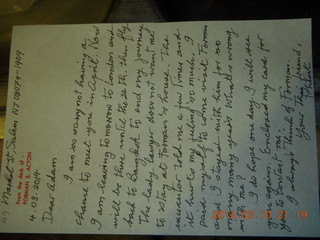 From the desk of ...
FORMAN S. ACTON
Market St. Salem NJ 08079-1909
4.03.2014
Dear Adam
I am so sorry not having a
chance to meet you in April. Now
I am leaving tomorrow to London and
will be there until the 26th, then fly
back to Bangkok to end my journey
The lady lawyer does not want me
to stay at Forman's house. The
executor told me a few times and
it hurts my feeling so much. I
paid myself to come visit Forman
and I stayed with him for so
many many years. What's wrong
with me?
I do hope one day I will see
you again. Enclosed my card for
you to contact me.
I always think of Forman.
Your Thai friend,